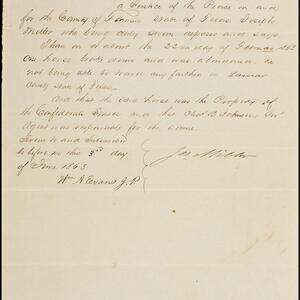 a Justice of the Peace in and
for the County of Fannin State of Texas Joseph
Miller who being duly sworn deposes and says
That on or about the 22nd day of February 1863
One horse broke down and was abandoned he
not being able to travel any further in Lamar
County State of Texas.
And that the said horse was the Property of
the Confederate States and that
Agent was responsible for the same
Sworn to and Subscribed
to before me this 3rd day
of June 1863
Jos Miller
Wm A Evans J.P.